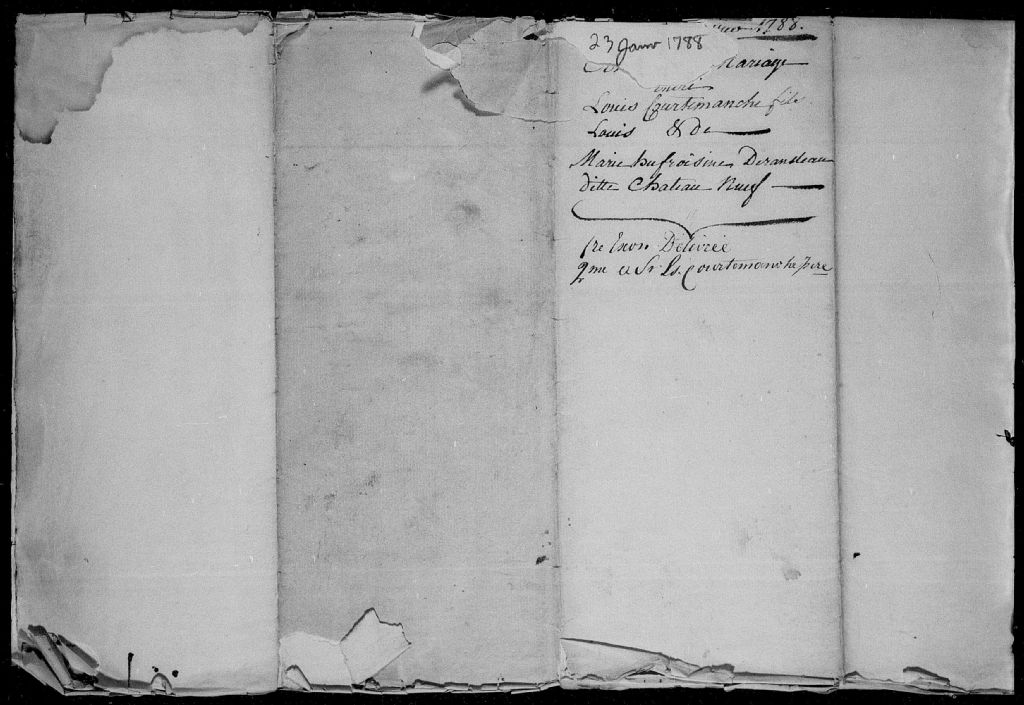 1788.
23 Janv 1788
Mariage
entre
Louis Courtemanche fils
Louis & de
Marie Eufroisine Derandeau
ditte Chateau Neuf
1re Exon Délivrée
2me a Sr Ls. Courtemanche père